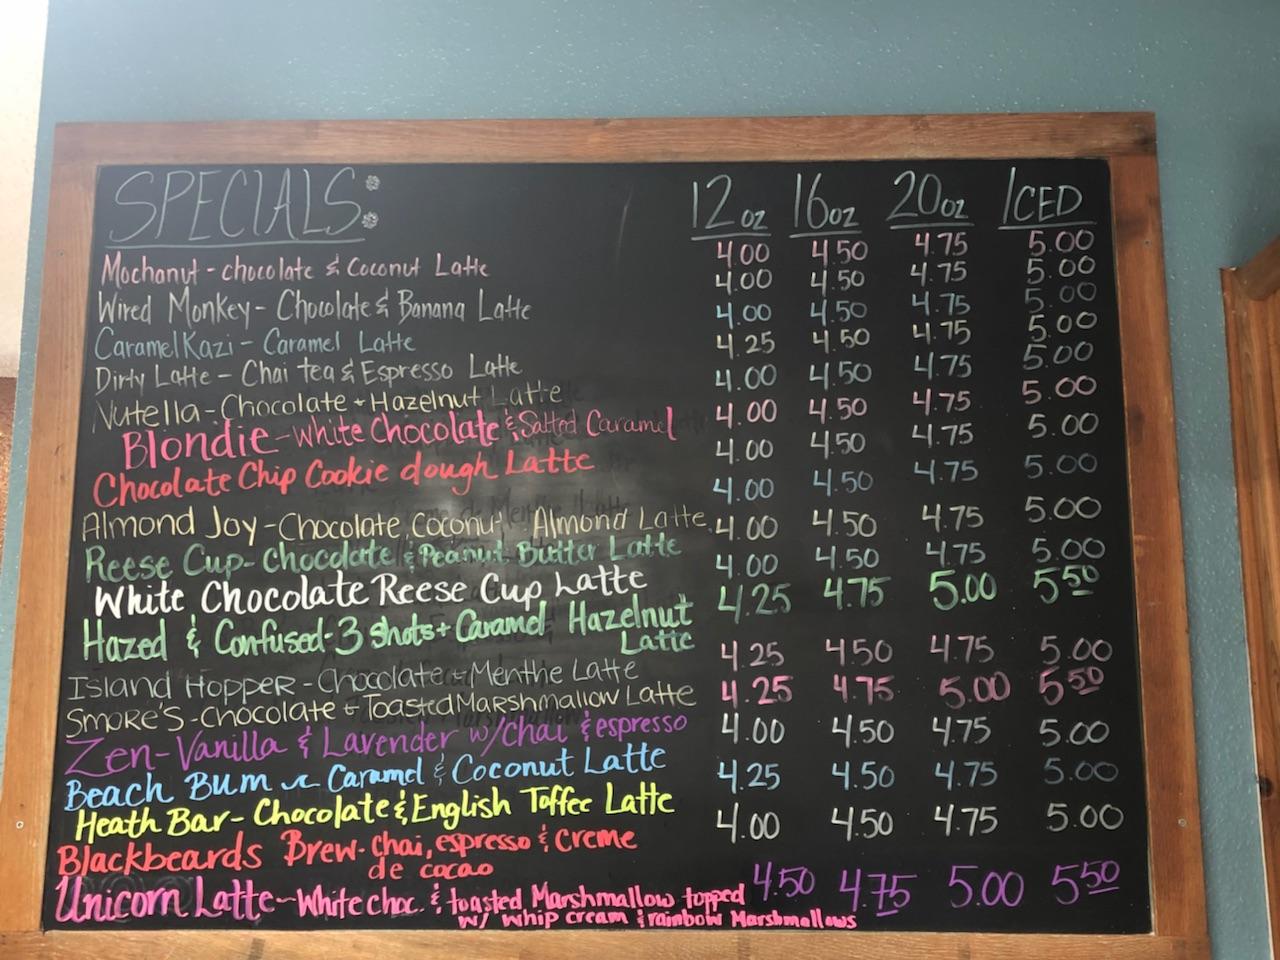 SPECIALS: 12oz 16oz 20oz ICED
Mochanut - chocolate & Coconut Latte 4.00 4.50 4.75 5.00
Wired Monkey - Chocolate & Banana Latte 4.00 4.50 4.75 5.00
CaramelKazi - Caramel Latte 4.00 4.50 4.75 5.00
Dirty Latte - Chai tea & Espresso Latte 4.25 4.50 4.75 5.00
Nutella - Chocolate + Hazelnut Latte 4.00 4.50 4.75 5.00
Blondie - White Chocolate & Salted Caramel 4.00 4.50 4.75 5.00
Chocolate Chip Cookie dough Latte 4.00 4.50 4.75 5.00
Almond Joy - Chocolate, Coconut, Almond Latte 4.00 4.50 4.75 5.00
Reese Cup - Chocolate & Peanut Butter Latte 4.00 4.50 4.75 5.00
White Chocolate Reese Cup Latte 4.00 4.50 4.75 5.00
Hazed & Confused - 3 Shots + Caramel Hazelnut 4.25 4.75 5.00 5.50
Latte
Island Hopper - Chocolate + Menthe Latte 4.25 4.50 4.75 5.00
Smore's - Chocolate & Toasted Marshmallow Latte 4.25 4.75 5.00 5.50
Zen - Vanilla & Lavender w/chai & espresso 4.00 4.50 4.75 5.00
Beach Bum ~ Caramel & Coconut Latte 4.25 4.50 4.75 5.00
Heath Bar - Chocolate & English Toffee Latte 4.00 4.50 4.75 5.00
Blackbeards Brew - Chai, espresso & Creme
de cacao
Unicorn Latte - White choc. & toasted Marshmallow topped 4.50 4.75 5.00 5.50
w/ whip cream & rainbow Marshmallows